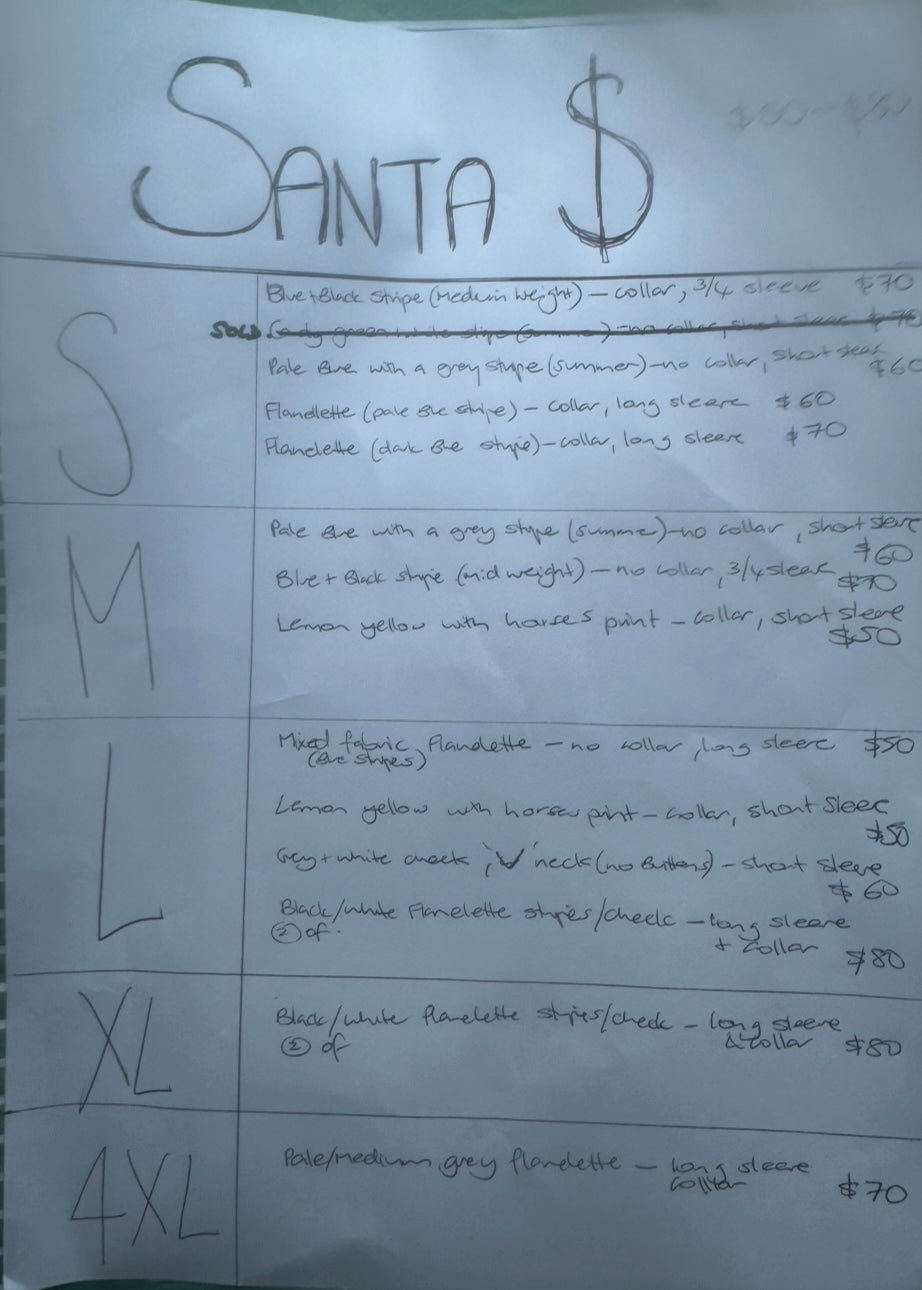 SANTA $
$50-$80
S
Blue + Black stripe (Medium weight) – collar, 3/4 sleeve $70
SOLD green white stripe (summer) – no collar, short sleeve $70
Pale Blue with a grey stripe (summer) – no collar, short sleeve
$60
Flanelette (pale Blue stripe) – collar, long sleeve $60
Flanelette (dark Blue stripe) – collar, long sleeve $70
M
Pale Blue with a grey stripe (summer) – no collar, short sleeve
$60
Blue + Black stripe (mid weight) – no collar, 3/4 sleeve
$70
Lemon yellow with horses print – collar, short sleeve
$50
L
Mixed fabric Flanelette – no collar, long sleeve $50
(Blue stripes)
Lemon yellow with horses print – collar, short sleeve
$50
Grey + white check, 'V' neck (no Buttons) – short sleeve
$60
Black/white Flanelette stripes/check – long sleeve
② of. + collar
$80
XL
Black/white flanelette stripes/check – long sleeve
② of & collar $80
4XL
Pale/Medium grey flanelette – long sleeve
collar $70